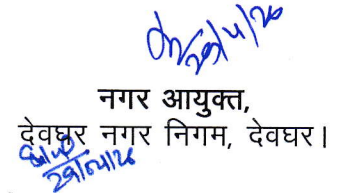 29/4/26
नगर आयुक्त,
देवघर नगर निगम, देवघर।
29/04/26